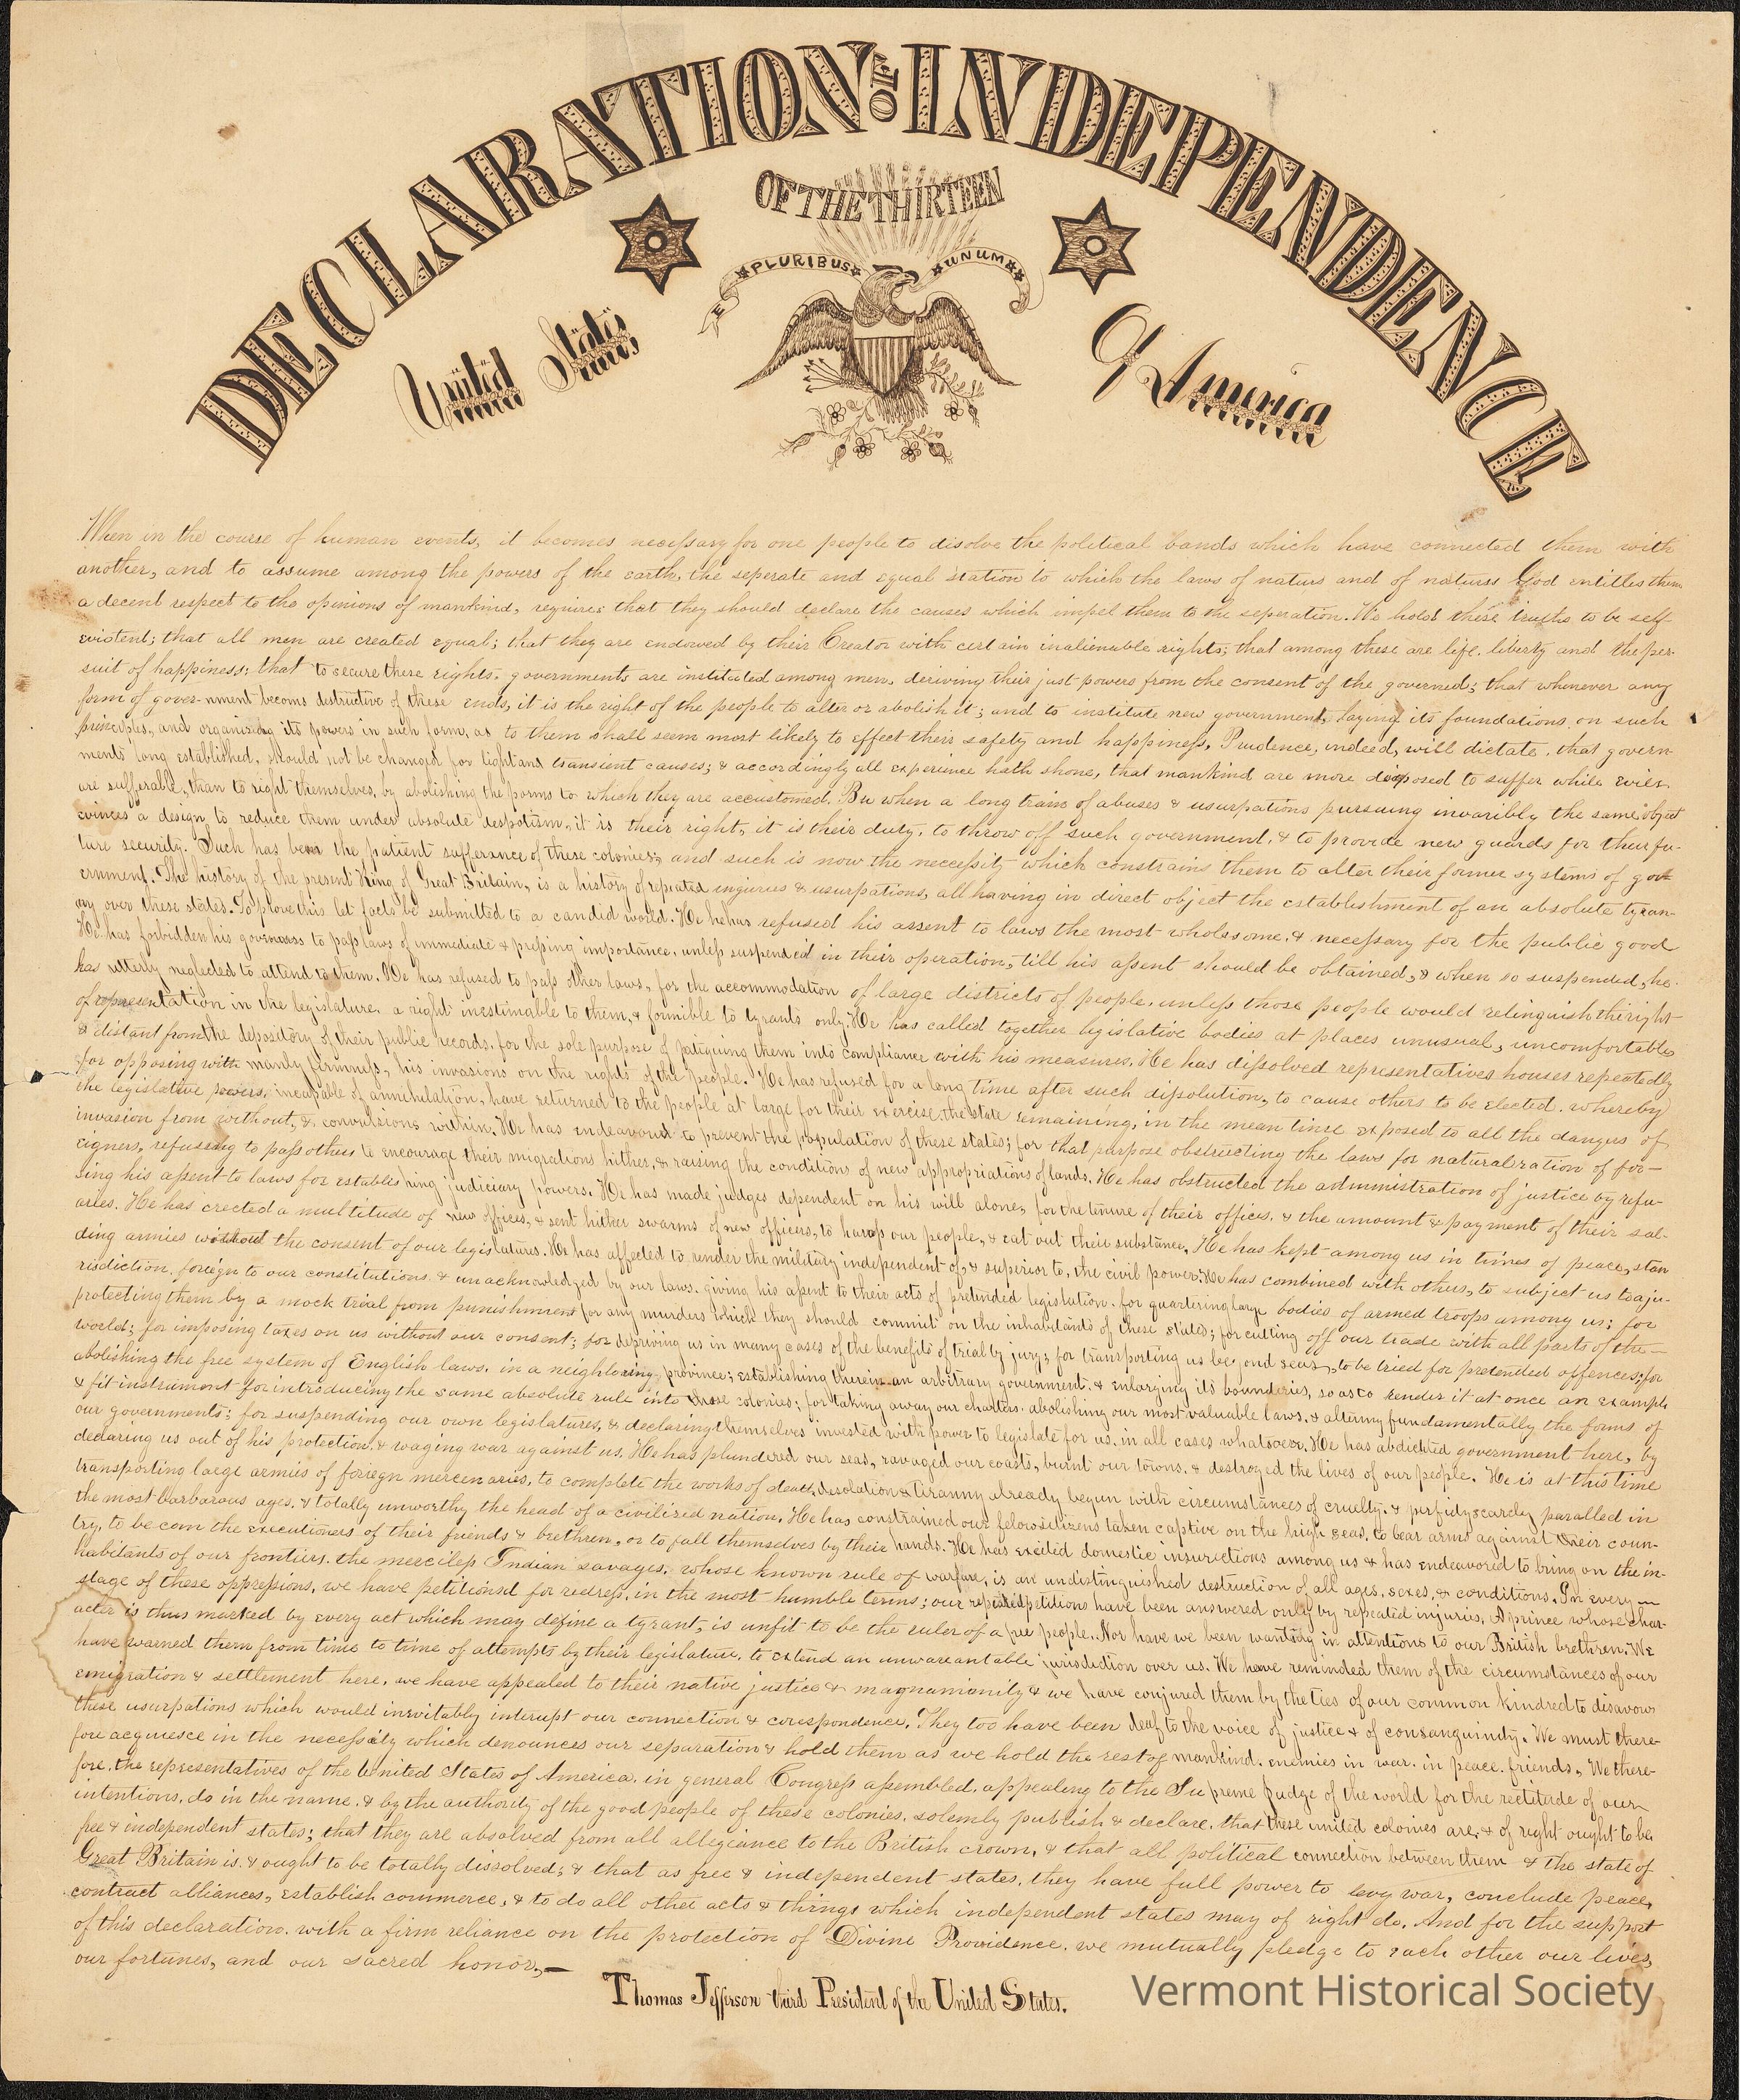 DECLARATION OF INDEPENDENCE
OF THE THIRTEEN
E PLURIBUS UNUM
United States Of America
When in the course of human events, it becomes necessary for one people to disolve the political bands which have connected them with
another, and to assume among the powers of the earth, the seperate and equal station to which the laws of nature and of natures God entitles them
a decent respect to the opinions of mankind, requires that they should declare the causes which impel them to the seperation. We hold these truths to be self-
evident; that all men are created equal; that they are endowed by their Creator with certain inalienable rights; that among these are life, liberty and the per-
suit of happiness; that to secure these rights, governments are instituted among men, deriving their just powers from the consent of the governed; that whenever any
form of gover-nment becoms destructive of these ends, it is the right of the people to alter or abolish it; and to institute new government, laying its foundations on such
principles, and organizing its powers in such form, as to them shall seem most likely to effect their safety and happiness, Prudence, indeed, will dictate, that govern-
ments long established, should not be changed for light and transient causes; & accordingly all experience hath shone, that mankind are more disposed to suffer while evils
are sufferable, than to right themselves, by abolishing the forms to which they are accustomed. Bu when a long train of abuses & usurpations pursuing invaribly the same object
evinces a design to reduce them under absolute despotism, it is their right, it is their duty, to throw off such government, & to provide new guards for their fu-
ture security. Such has been the patient sufferance of these colonies; and such is now the necessity which constrains them to alter their former systems of gov-
ernment. The history of the present King of Great Britain, is a history of repeated injuries & usurpations, all having in direct object the establishment of an absolute tyran-
ny over these states. To prove this let facts be submitted to a candid world. He hehas refused his assent to laws the most wholesome, & necessary for the public good
He has forbidden his governors to pass laws of immediate & pressing importance, unless suspended in their operation, till his assent should be obtained, & when so suspended, he
has utterly neglected to attend to them. He has refused to pass other laws, for the accommodation of large districts of people, unless those people would relinquish the right
of representation in the legislature, a right inestimable to them, & formible to tyrants only. He has called together legislative bodies at places unusual, uncomfortable
& distant from the depository of their public records, for the sole purpose of fatiguing them into compliance with his measures. He has dissolved representatives houses repeatedly
for opposing with manly firmness, his invasions on the rights of the people. He has refused for a long time after such dissolution, to cause others to be elected, whereby
the legislative powers, incapable of annihilation, have returned to the people at large for their exercise the state remaining, in the mean time exposed to all the dangers of
invasion from without, & convulsions within. He has endeavourd to prevent the population of these states; for that purpose obstructing the laws for naturalization of for-
eigners, refusing to pass others to encourage their migrations hither, & raising the conditions of new appropriations of lands. He has obstructed the administration of justice by refu-
sing his assent to laws for establishing judiciary powers. He has made judges dependent on his will alone, for the tenure of their offices, & the amount & payment of their sal-
aries. He has erected a multitude of new offices, & sent hither swarms of new officers, to harass our people, & eat out their substance, He has kept among us in times of peace, stan
ding armies without the consent of our legislatures. He has affected to render the military independent of, & superior to, the civil power. He has combined with others, to subject us to a ju-
risdiction, foreign to our constitutions, & unacknowledged by our laws, giving his assent to their acts of pretended legislation, for quartering large bodies of armed troops among us; for
protecting them by a mock trial from punishment for any murders which they should commit on the inhabitants of these states; for cutting off our trade with all parts of the
world; for imposing taxes on us without our consent; for depriving us in many cases of the benefits of trial by jury; for transporting us beyond seas, to be tried for pretended offences; for
abolishing the free system of English laws, in a neighboring province; establishing therein an arbitrary government, & enlarging its bounderies, so as to render it at once an example
& fit instrument for introducing the same absolute rule into these colonies; for taking away our charters, abolishing our most valuable laws, & altering fundamentally the forms of
our governments; for suspending our own legislatures, & declaring themselves invested with power to legislate for us, in all cases whatsoever. He has abdicated government here, by
declaring us out of his protection, & waging war against us. He has plundered our seas, ravaged our coasts, burnt our towns, & destroyed the lives of our people. He is at this time
transporting large armies of foriegn mercenaries, to complete the works of death, desolation & tiranny already begun with circumstances of cruelty, & perfidy scarcely paralled in
the most barbarous ages, & totally unworthy the head of a civilized nation. He has constrained our felow citizens taken captive on the high seas, to bear arms against their coun-
try, to be com the executioners of their friends & brethren, or to fall themselves by their hands. He has excited domestic insurictions among us & has endeavored to bring on the in-
habitants of our frontiers, the merciless Indian savages, whose known rule of warfare, is an undistinguished destruction of all ages, sexes, & conditions. In every
stage of these oppressions, we have petitioned for redress, in the most humble terms; our repeated petitions have been answered only by repeated injuries, A prince whose char-
acter is thus marked by every act which may define a tyrant, is unfit to be the ruler of a free people. Nor have we been wanting in attentions to our British brethren. We
have warned them from time to time of attempts by their legislature, to extend an unwarrantable jurisdiction over us. We have reminded them of the circumstances of our
emigration & settlement here, we have appealed to their native justice & magnamonity & we have conjured them by the ties of our common kindred to disavow
these usurpations which would inevitably interupt our connection & corespondence. They too have been deaf to the voice of justice & of consanguindy. We must there-
fore acquiesce in the necessity which denounces our separation & hold them as we hold the rest of mankind, enemies in war, in peace, friends, We there-
fore, the representatives of the United States of America, in general Congress assembled, appealing to the Supreme Judge of the world for the rectitude of our
intentions, do in the name, & by the authority of the good people of these colonies, solemly publish & declare, that these united colonies are, & of right ought to be
free & independent states; that they are absolved from all allegiance to the British crown, & that all political connection between them & the state of
Great Britain is, & ought to be totally dissolved; & that as free & independent states, they have full power to levy war, conclude peace,
contract alliances, establish commerce, & to do all other acts & things which independent states may of right do. And for the support
of this declaration, with a firm reliance on the protection of Divine Providence, we mutually pledge to each other our lives,
our fortunes, and our sacred honor,—
Thomas Jefferson third President of the United States.
Vermont Historical Society